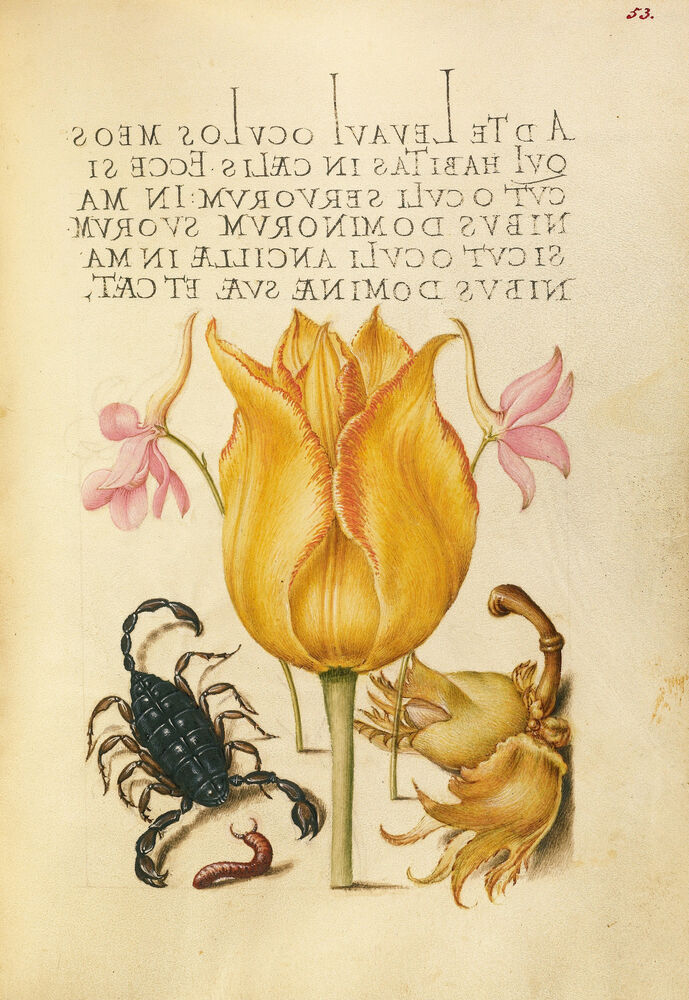 53.
AD TE LEVAVI OCVLOS MEOS
QVI HABITAS IN CÆLIS. ECCE SI
CVT OCVLI SERVORVM: IN MA
NIBVS DOMINORVM SVORVM.
SICVT OCVLI ANCILLÆ IN MA
NIBVS DOMINÆ SVÆ ET CÆT,